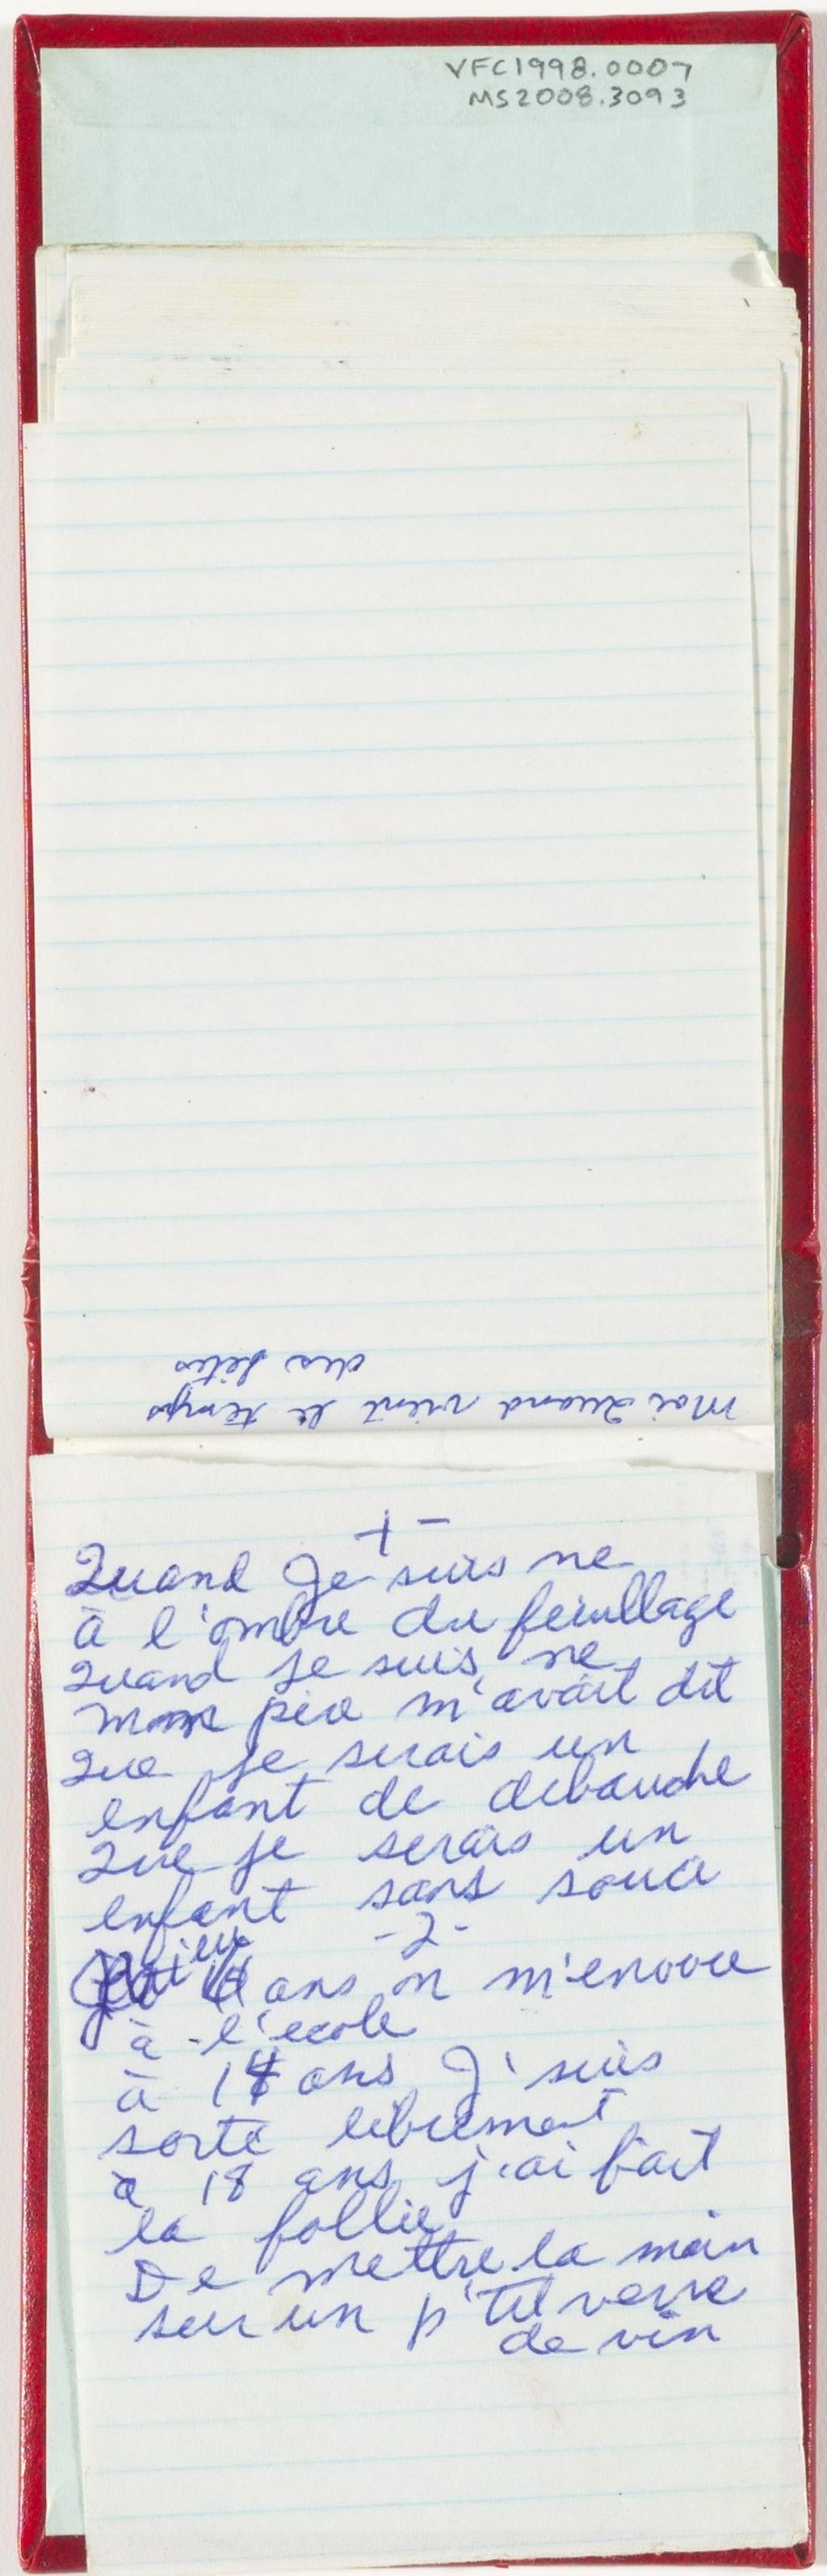 VFC1998.0007
MS2008.3093
Moi quand vient le temps
des fêtes
+ -
Quand Je suis ne
à l'ombre du feuillage
quand je suis ne
mon père m'avait dit
que je serais un
enfant de debauche
que je serais un
enfant sans souci
-2-
ans on m'envoie
à l'ecole
à 14 ans J'suis
sorte librement
a 18 ans j'ai fait
la follie
De mettre la main
sur un p'tit verre
de vin